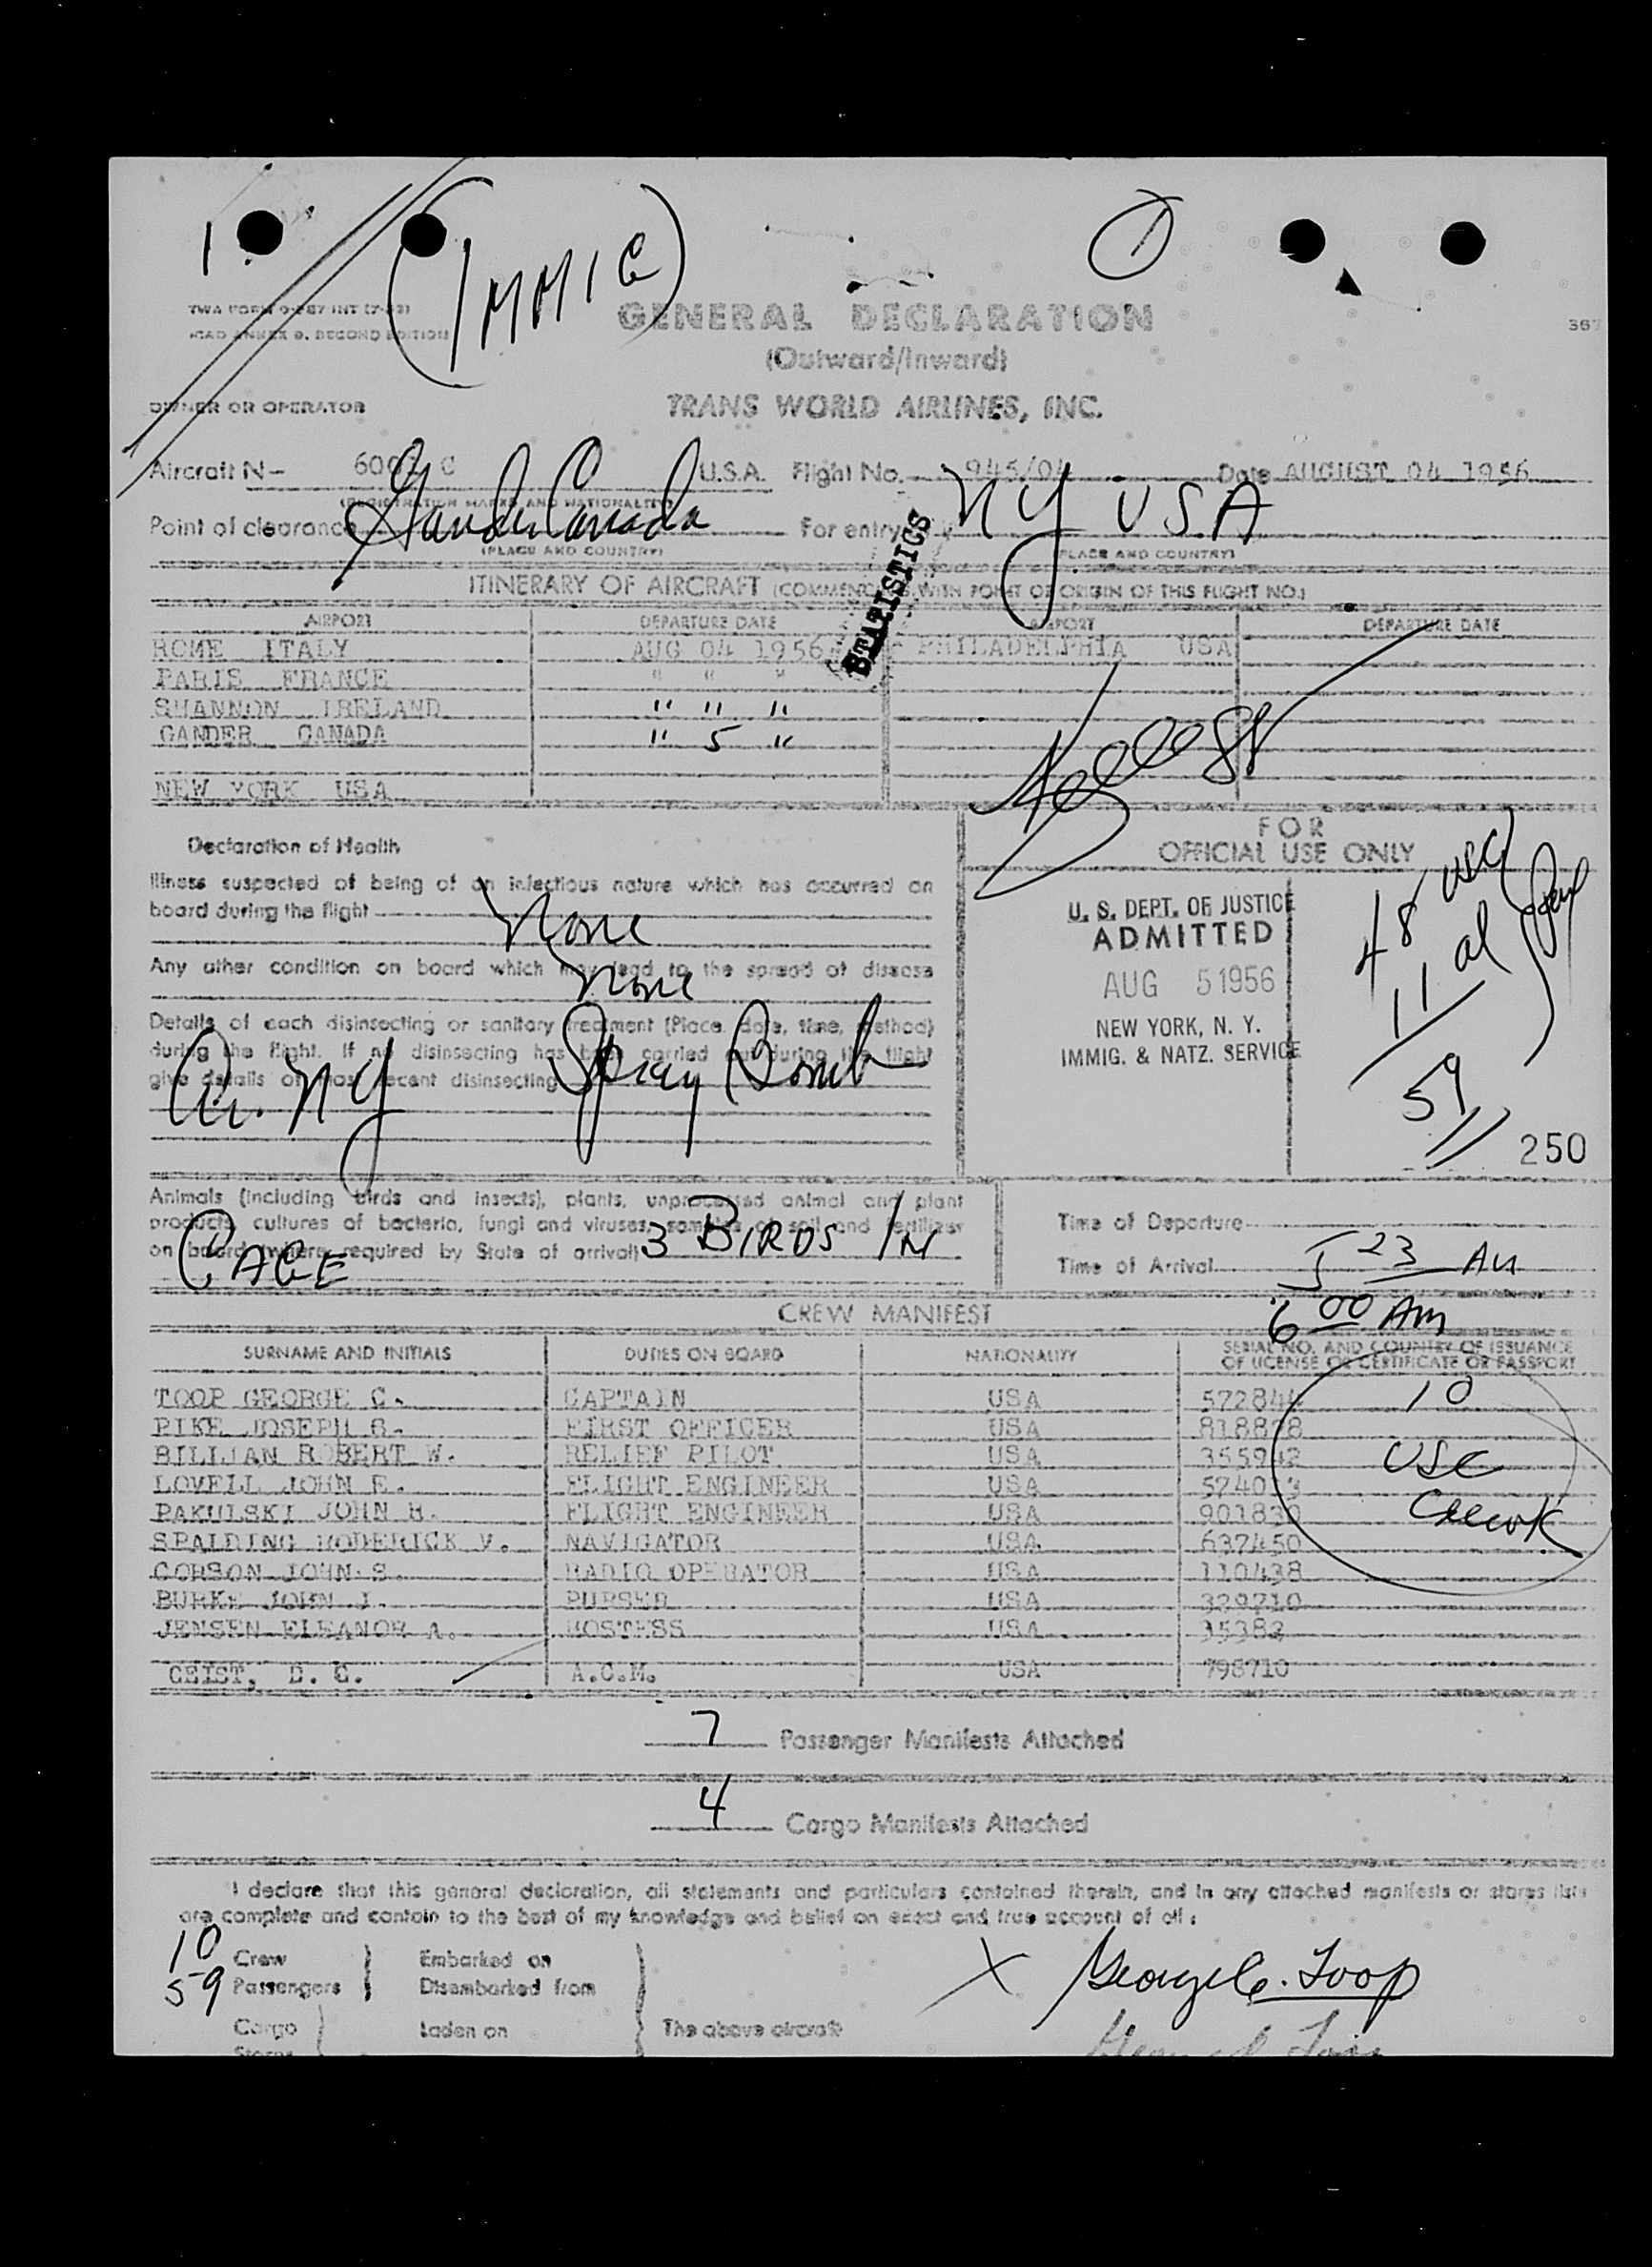 1
(IMMIG)
1
TWA FORM
ICAO ANNEX 9, SECOND EDITION
367
GENERAL DECLARATION
(Outward/Inward)
OWNER OR OPERATOR
TRANS WORLD AIRLINES, INC.
Aircraft N- C U.S.A. Flight No. 945/04 Date AUGUST 04 1956
(REGISTRATION MARKS AND NATIONALITY)
Point of clearance Gander Canada For entry NY USA
(PLACE AND COUNTRY) (PLACE AND COUNTRY)
STATISTICS
ITINERARY OF AIRCRAFT (COMMENCING WITH POINT OF ORIGIN OF THIS FLIGHT NO.)
AIRPORT DEPARTURE DATE AIRPORT DEPARTURE DATE
ROME ITALY AUG 04 1956 PHILADELPHIA USA
PARIS FRANCE " " "
SHANNON IRELAND " " "
GANDER CANADA " 5 "
NEW YORK USA
Declaration of Health
Illness suspected of being of an infectious nature which has occurred on
board during the flight
None
Any other condition on board which may lead to the spread of disease
None
Details of each disinsecting or sanitary treatment (Place, date, time, method)
during the flight. If no disinsecting has been carried out during the flight
give details of most recent disinsecting
Ar. NY Spray Bomb
FOR
OFFICIAL USE ONLY
U. S. DEPT. OF JUSTICE
ADMITTED
AUG 5 1956
NEW YORK, N. Y.
IMMIG. & NATZ. SERVICE
48 USC
11 al
59
250
Animals (including birds and insects), plants, unprocessed animal and plant
products, cultures of bacteria, fungi and viruses, samples of soil and fertilizer
on board (where required by State of arrival) 3 BIRDS IN
CAGE
Time of Departure
Time of Arrival 5 23 AM
6 00 AM
CREW MANIFEST
SURNAME AND INITIALS DUTIES ON BOARD NATIONALITY SERIAL NO. AND COUNTRY OF ISSUANCE
OF LICENSE OR CERTIFICATE OR PASSPORT
TOOP GEORGE C. CAPTAIN USA
PIKE JOSEPH FIRST OFFICER USA
ROBERT W. RELIEF PILOT USA
LOVELL JOHN E. FLIGHT ENGINEER USA
PAKULSKI JOHN FLIGHT ENGINEER USA
SPALDING RODERICK V. NAVIGATOR USA 637450
CORSON JOHN S. RADIO OPERATOR USA 110438
BURKE JOHN J. PURSER USA 329710
JENSEN ELEANOR A. HOSTESS USA
GEIST, D. C. A.C.M. USA 798710
10
USC
7 Passenger Manifests Attached
4 Cargo Manifests Attached
I declare that this general declaration, all statements and particulars contained therein, and in any attached manifests or stores lists
are complete and contain to the best of my knowledge and belief an exact and true account of all:
10 Crew Embarked on
59 Passengers Disembarked from
X George C. Toop
Cargo Laden on The above aircraft
Stores